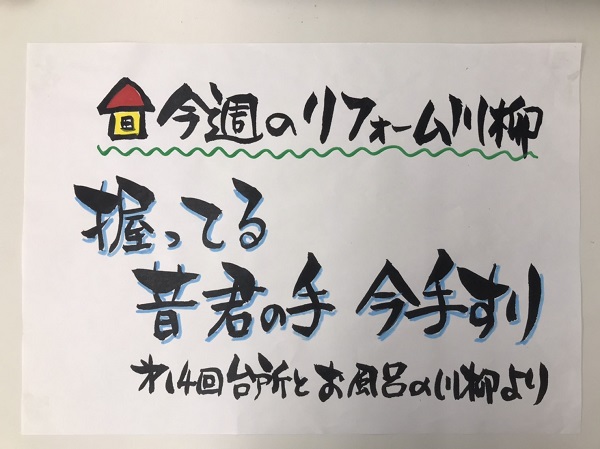 今週のリフォーム川柳
握ってる
昔君の手 今手すり
第14回台所とお風呂の川柳より